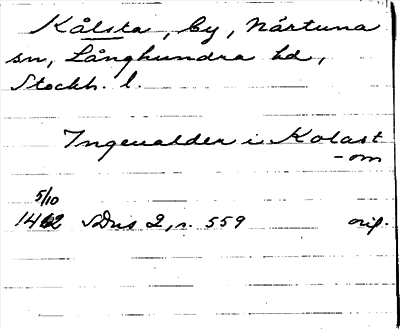 Kålsta, by, Närtuna
sn, Långhundra hd,
Stockh. l.
Ingeualder i Kolast
-om
5/10
1402 SDns 2, s. 559 orig.